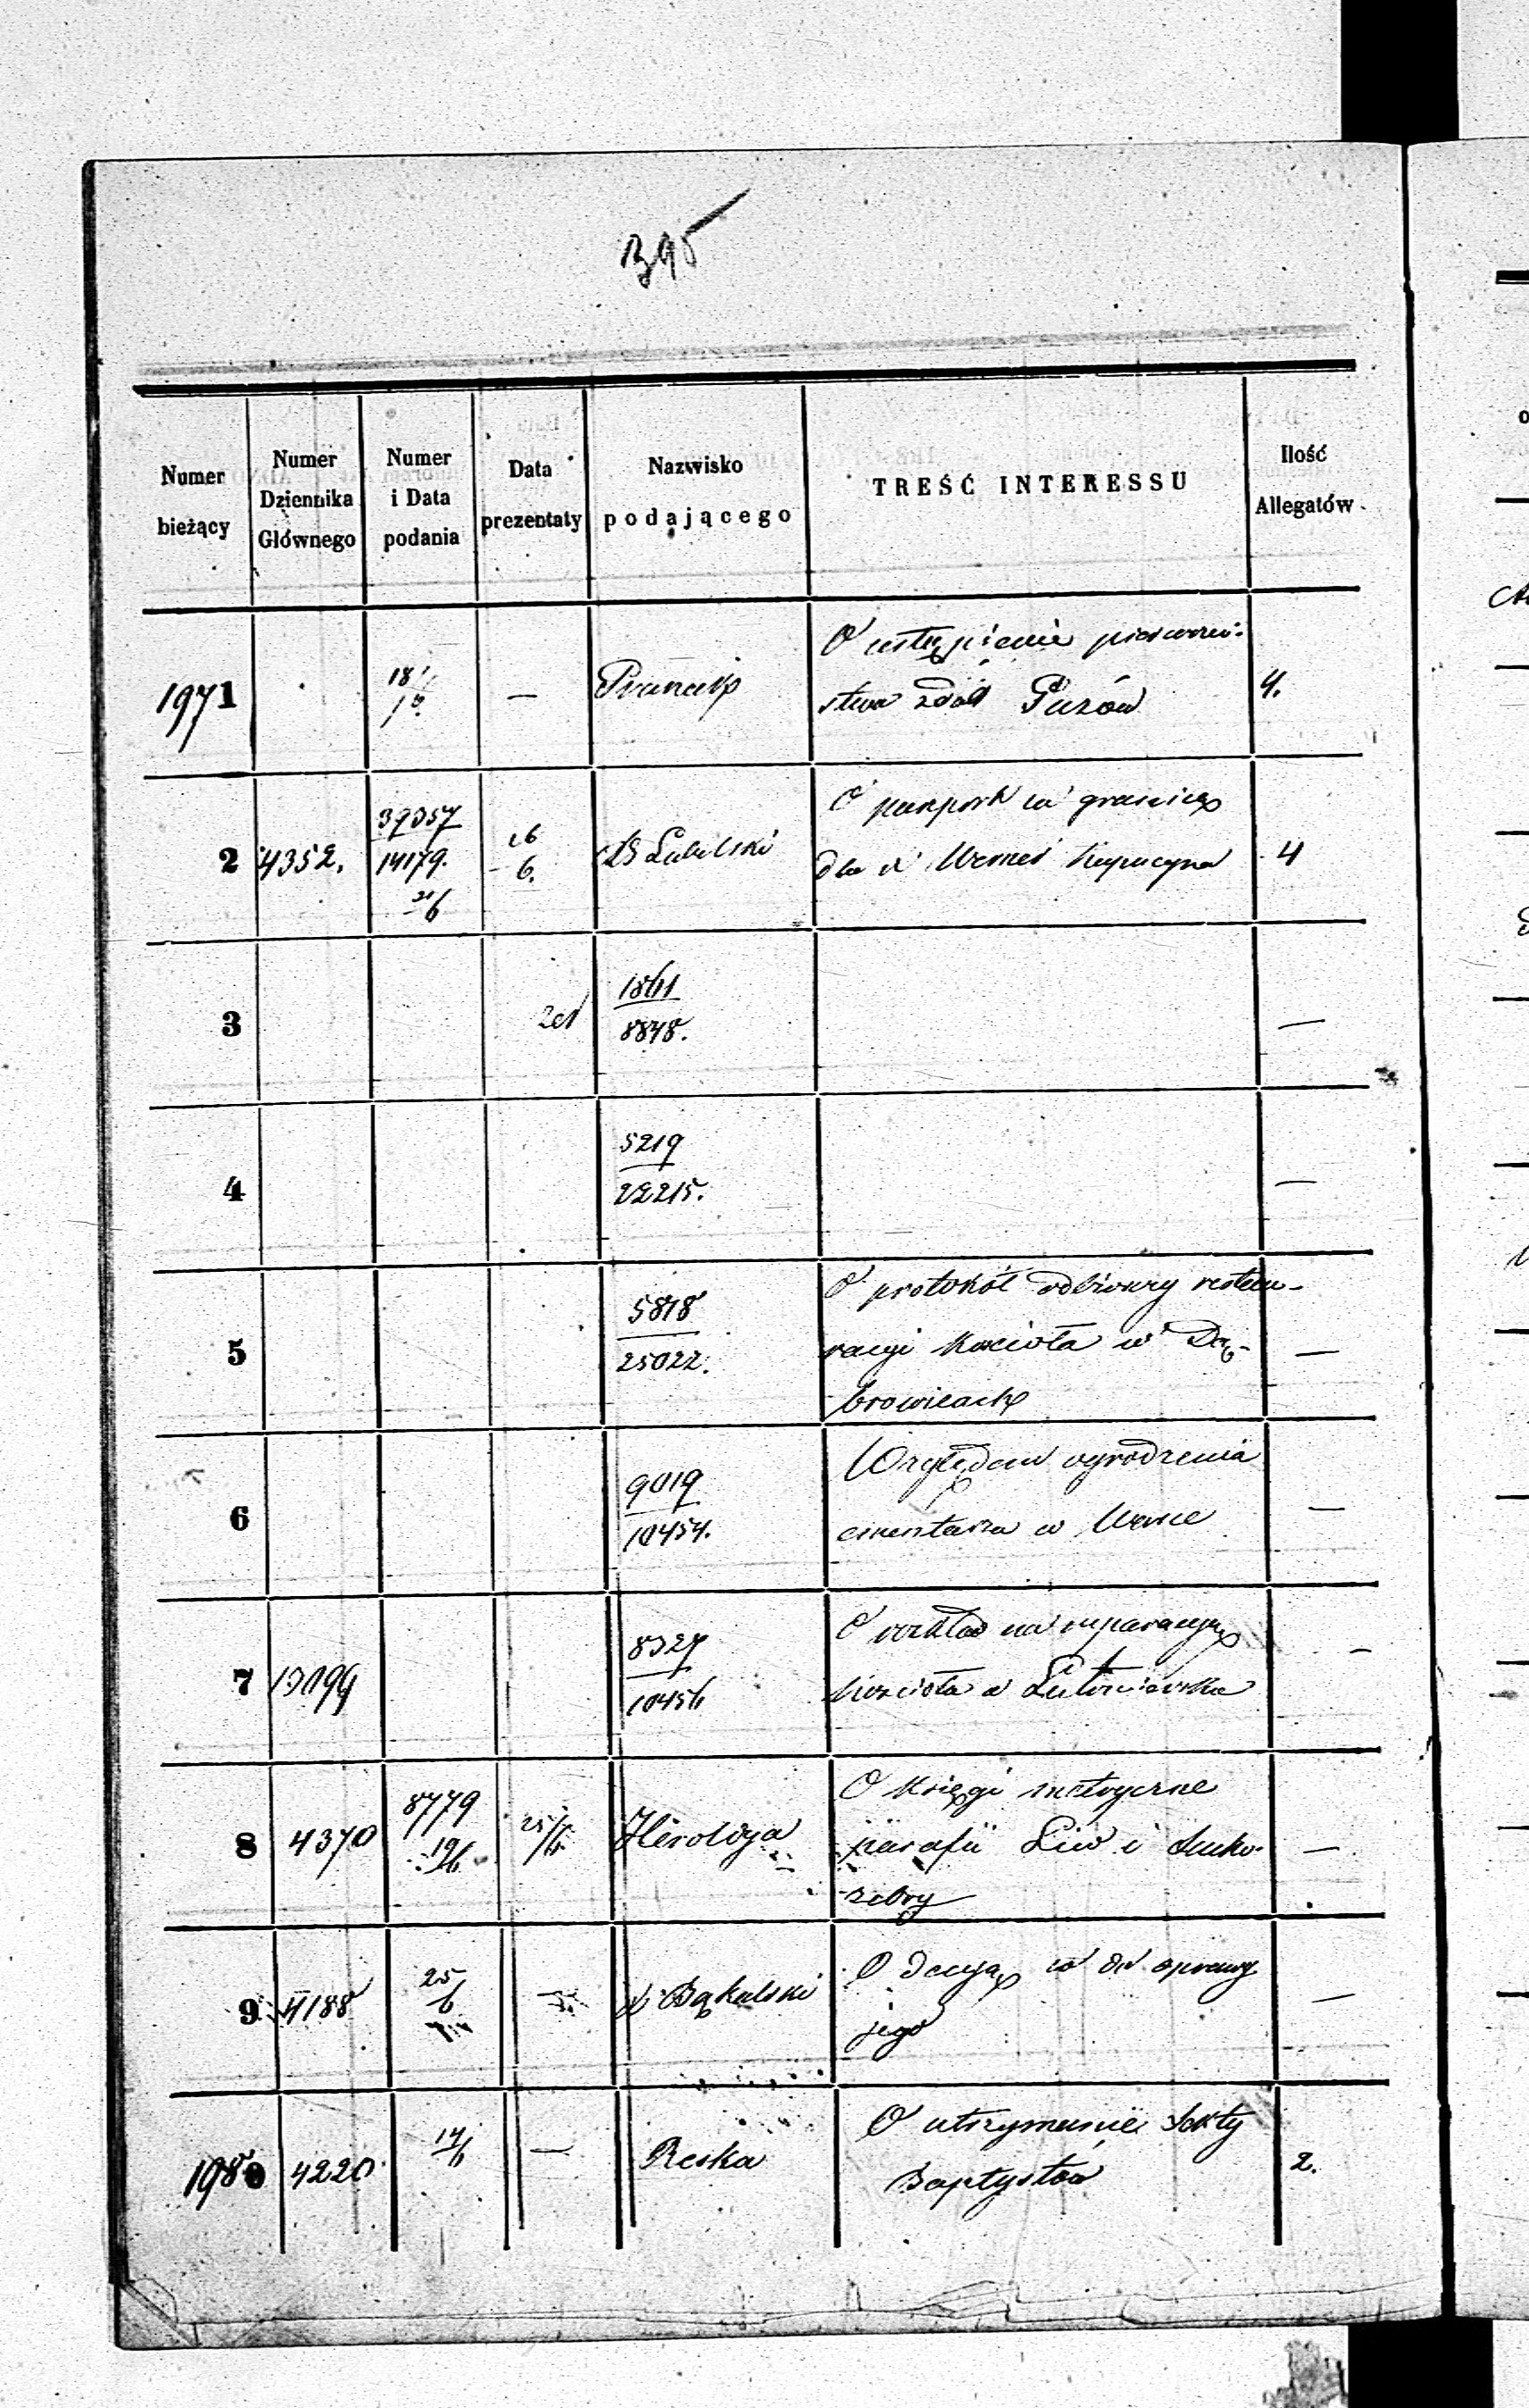 395
Numer bieżący
Numer Dziennika Głównego
Numer i Data podania
Data prezentaty
Nazwisko podającego
TREŚĆ INTERESSU
Ilość Allegatów
1971
18/
—
O ustąpienie pierwszeń-
stwa
4.
2
4352.
39357
14179.
21/6
26
6.
Lubelski
O paszport za granicę
dla X Kapucyna
4
3
1861
8848.
—
4
5219
22215.
—
5
5818
25022.
O protokół odbiorczy restau-
racyi kościoła w Dą-
browicach
—
6
9019
10454.
Względem ogrodzenia
cmentarza w
—
7
8327
10456
O rozkład na reparacyę
kościoła w
-
8
4370
8779
19/6
25/6
Heroldya
O księgi metryczne
parafii Liw i Sucho-
żebry
—
9
4188
25
6
X Bąkalski
O decyzyę
jego
—
1980
4220
14/6
—
Reska
O utrzymanie Sekty
Baptystów
2.